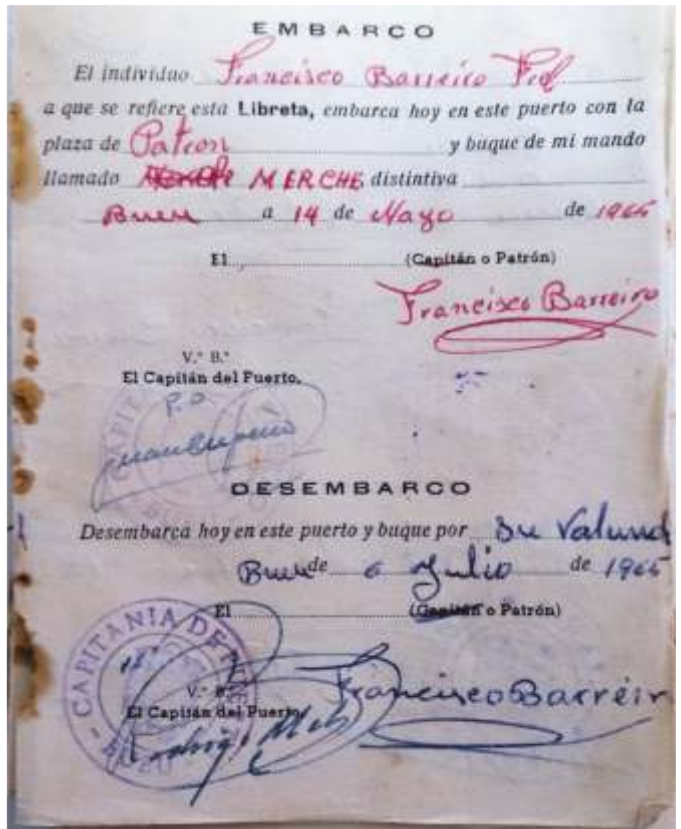 EMBARCO
El individuo Francisco Barreiro
a que se refiere esta Libreta, embarca hoy en este puerto con la
plaza de Patron y buque de mi mando
llamado MERCHE distintiva
Bueu a 14 de Mayo de 1965
El (Capitán o Patrón)
Francisco Barreiro
V.º B.º
El Capitán del Puerto,
P.O.
DESEMBARCO
Desembarca hoy en este puerto y buque por Su Valund
Bueu de 6 Julio de 1965
El (Capitán o Patrón)
CAPITANIA DE
V.º B.º
El Capitán del Puerto,
Francisco Barreir
BUEU